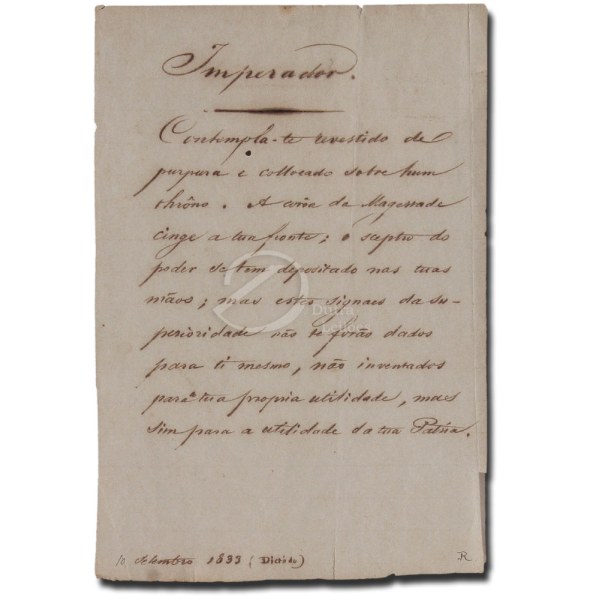 Imperador.
Contempla-te revestido de
purpura e collocado sobre hum
thrôno. A corôa da Magestade
cinge a tua fronte; o sceptro do
poder se tem depositado nas tuas
mãos; mas estes signaes da su-
perioridade não te forão dados
para ti mesmo, não inventados
para tua propria utilidade, mas
sim para a utilidade da tua Patria.
10, Setembro 1833 (Dictado)
R
D
Dutra
Leilões